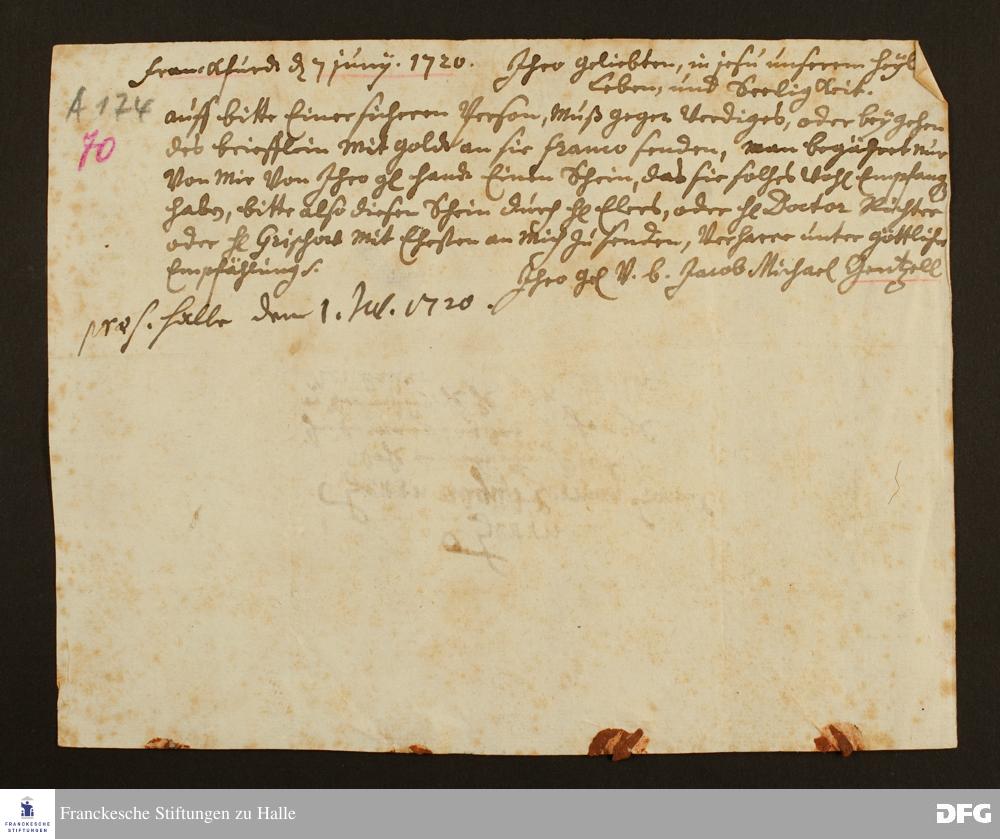 Franckfurdt d 7 juny. 1720. Ihro geliebten, in jesu unserem heyl
Leben, und Seeligkeit.
A 174
auff bitte Einer sicheren Person, muß gegen wardiges, oder beygehen
70
des briefflein mit goldt an sie franco senden, man begähret nur
von mir von Ihro gl handt Einen Schein, das sie solches wohl Empfang
haben, bitte also diesen Schein durch hl Elers, oder hl Doctor Richter
oder hl Grischow mit Ehesten an mich zu senden, verharre unter göttliche
Empfählung.
Ihro gel V. b. Jacob Michael Gentzell
præs. Halle dem 1. Jul. 1720.
FRANCKESCHE
STIFTUNGEN
Franckesche Stiftungen zu Halle
DFG